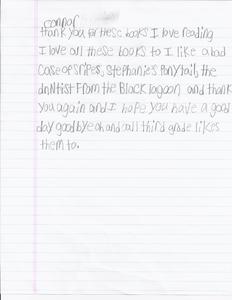 connor
thank you for these books I love reading
I love all these books to I like a bad
case of sripes, stephanie's Ponytail, the
dnNtist From the Black lagoon and thank
you again and I hope you have a good
day goodbye oh and all third grade likes
them to.